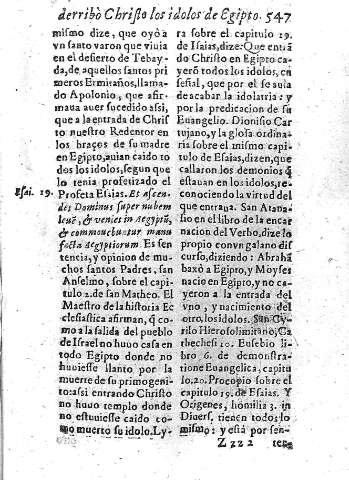 derribò Christo los idolos de Egipto. 547
mismo dize, que oyò a
vn santo varon que viuia
en el desierto de Tebay-
da, de aquellos santos pri
meros Ermitaños, llama-
do Apolonio, que afir-
maua auer sucedido assi,
que a la entrada de Chris
to nuestro Redentor en
los braços de su madre
en Egipto, auian caido to
dos los idolos, segun que
lo tenia profetizado el
Esai. 19. Profeta Esaias. Et ascen-
det Dominus super nubem
leuẽ, & veniet in Aegyptũ,
& commouebuntur manu
facta Aegyptiorum. Es sen-
tencia, y opinion de mu-
chos santos Padres, san
Anselmo, sobre el capi-
tulo 2. de san Matheo. El
Maestro de la historia Ec
clesiastica afirman, q̃ co-
mo a la salida del pueblo
de Israel no huuo casa en
todo Egipto donde no
huuiesse llanto por la
muerte de su primogeni-
to: assi entrando Christo
no huuo templo donde
no estuuiesse caido co-
mo muerto su idolo. Ly-
ra sobre el capitulo 19.
de Isaias, dize: Que entrã
do Christo en Egipto ca-
yerõ todos los idolos, en
señal, que por el se auia
de acabar la idolatria: y
por la predicacion de su
Euangelio. Dionisio Car
tujano, y la glosa ordina-
ria sobre el mismo capi-
tulo de Esaias, dizen, que
callaron los demonios q̃
estauan en los idolos, re-
conociendo la virtud del
que entraua. San Atana-
sio en el libro de la encar
nacion del Verbo, dize lo
propio con vn galano dis
curso, diziendo: Abrahã
baxò a Egipto, y Moyses
nacio en Egipto, y no ca-
yeron a la entrada del
vno, y nacimiento del
otro, los idolos. San Cy-
rilo Hierosolimitano, Ca
thechesi 10. Eusebio li-
bro 6. de demonstra-
tione Euangelica, capitu
lo. 20. Procopio sobre el
capitulo 19. de Esaias. Y
Origenes, homilia 3. in
Diuers. tienen todos lo
mismo: y està por sen-
Zzz 2 ten-